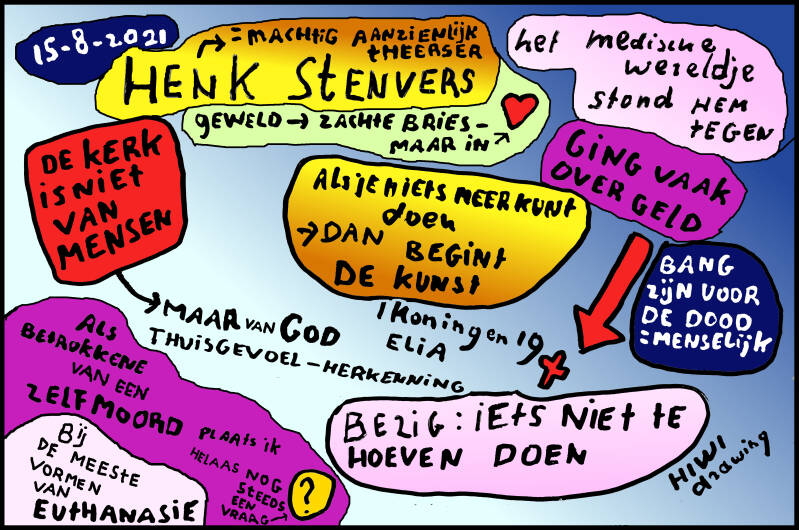 15-8-2021
= MACHTIG AANZIENLIJK
+HEERSER
HENK STENVERS
GEWELD → ZACHTE BRIES -
MAAR IN
het medische
wereldje
stond HEM
TEGEN
GING VAAK
OVER GELD
DE KERK
iS NiET
VAN
MENSEN
Als je niets MEER KUNT
doen
→ DAN BEGINT
DE KUNST
BANG
ZIJN VOOR
DE DOOD
= MENSELIJK
→ MAAR VAN GOD
THUISGEVOEL - HERKENNING
1 Koningen 19
ELIA
ALS
BETROKKENE
VAN EEN
ZELFMOORD PLAATS iK
HELAAS NOG
STEEDS
EEN
VRAAG →
?
Bij
DE MEESTE
VORMEN
VAN
EUTHANASIE
BEZIG: IETS NIET TE
HOEVEN DOEN
HIWI
drawing